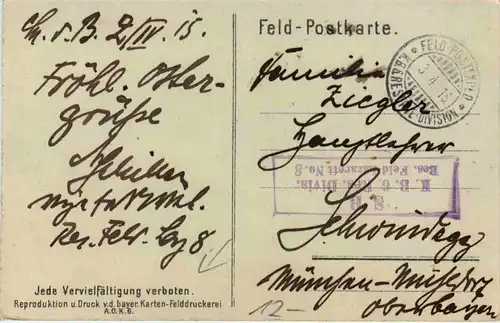 Ch. d. B. 2/IV. 15.
Fröhl. Oster-
grüße
Res. Feld. Laz 8
Jede Vervielfältigung verboten.
Reproduktion u. Druck v. d. bayer. Karten-Felddruckerei
A.O.K.6.
Feld-Postkarte.
FELD-POSTEXP.
3.4.15
K.B. 6. RESERVE-DIVISION
Familie
Ziegler
Hauptlehrer
S. B.
K. B. 6. Res. Divis.
Res. Feld-Lazarett No. 8
Schwindegg
München-Mühldorf
Oberbayern
12-